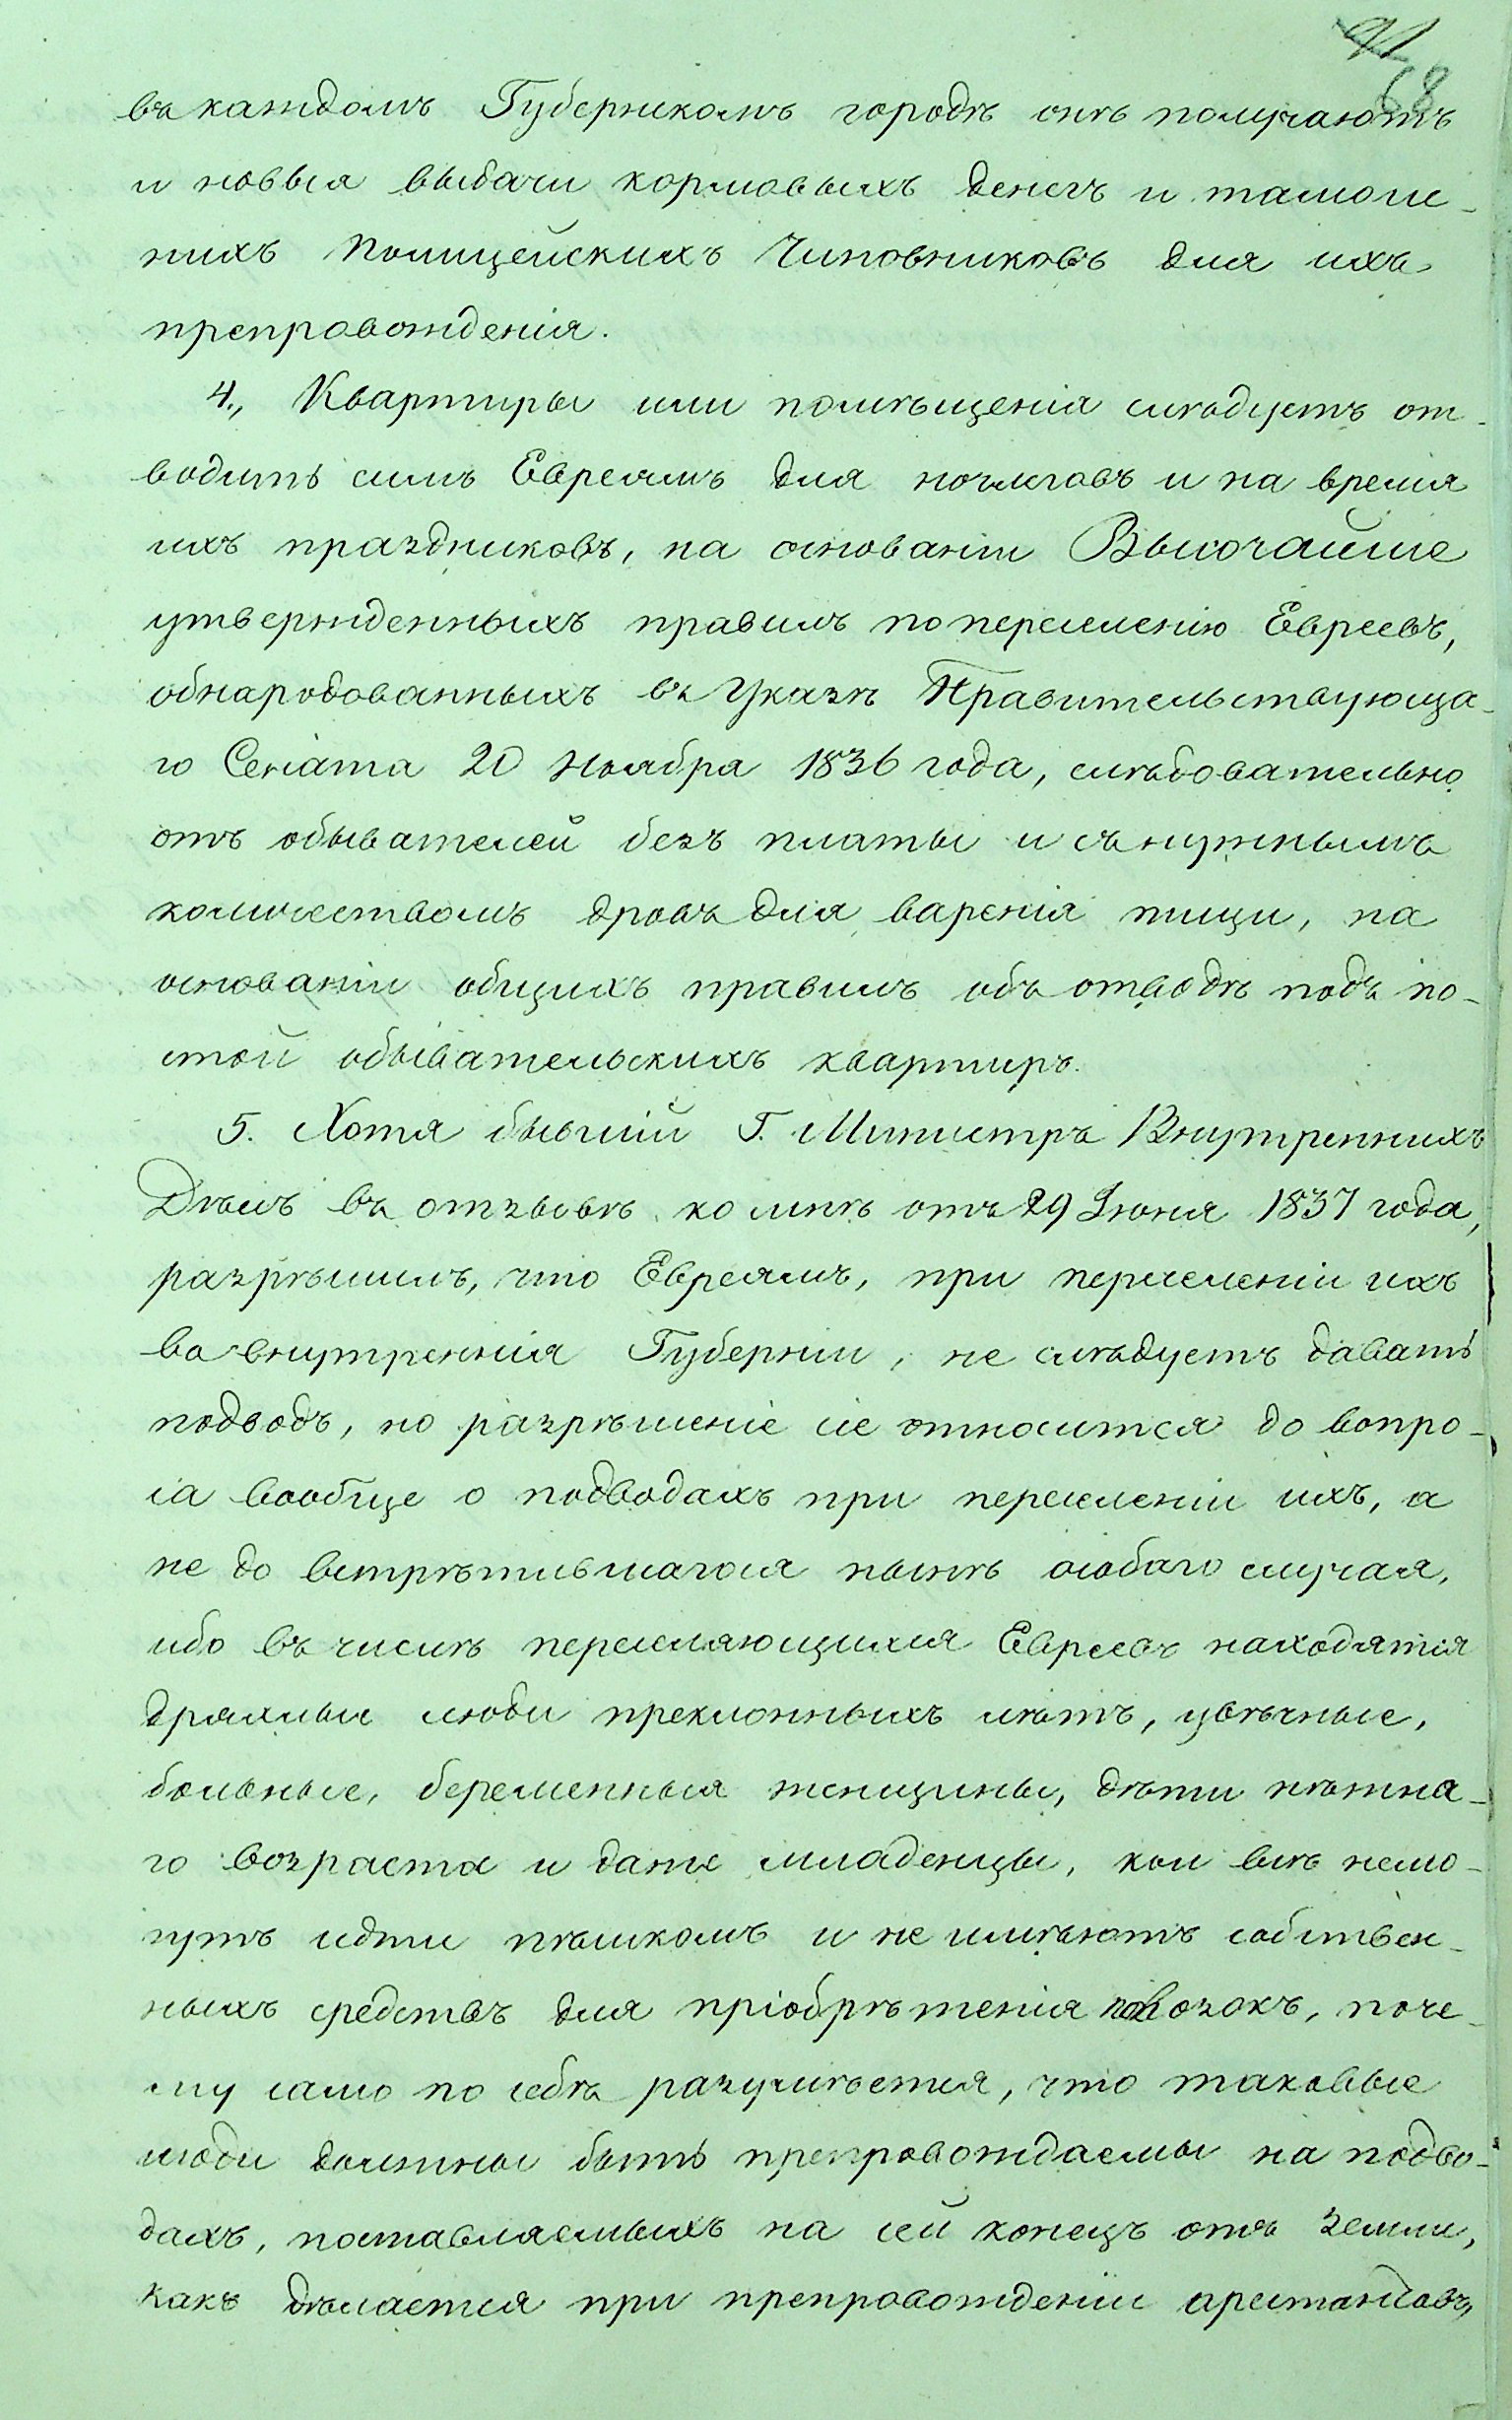 91
68
въ каждомъ Губернскомъ городѣ онѣ получаютъ
и новыя выдачи кормовыхъ денегъ и тамош-
нихъ Полицейскихъ Чиновниковъ для ихъ
препровожденія.
4., Квартиры или помѣщенія слѣдуетъ от-
водить симъ Евреямъ для ночлеговъ и на время
ихъ праздниковъ, на основаніи Высочайше
утвержденныхъ правилъ по переселенію Евреевъ,
обнародованныхъ въ Указѣ Правительствующа-
го Сената 20 Ноября 1836 года, слѣдовательно
отъ обывателей безъ платы и съ нужнымъ
количествомъ дровъ для варенія пищи, на
основаніи общихъ правилъ объ отводѣ подъ по-
стой обывательскихъ квартиръ.
5. Хотя бывшій Г. Министръ Внутреннихъ
Дѣлъ въ отзывѣ ко мнѣ отъ 29 Іюня 1837 года,
разрѣшилъ, что Евреямъ, при переселеніи ихъ
во внутреннія Губерніи, не слѣдуетъ давать
подводъ, но разрѣшеніе сіе относится до вопро-
са вообще о подводахъ при переселеніи ихъ, а
не до встрѣтившагося нынѣ особаго случая,
ибо въ числѣ переселяющихся Евреевъ находятся
дряхлые люди преклонныхъ лѣтъ, увѣчные,
больные, беременныя женщины, дѣти нѣжна-
го возраста и даже младенцы, кои всѣ немо-
гутъ идти пѣшкомъ и не имѣютъ собствен-
ныхъ средствъ для пріобрѣтенія повозокъ, поче-
му само по себѣ разумѣется, что таковые
люди должны быть препровождаемы на подво-
дахъ, поставляемыхъ на сей конецъ отъ Земли,
какъ дѣлается при препровожденіи арестантовъ,